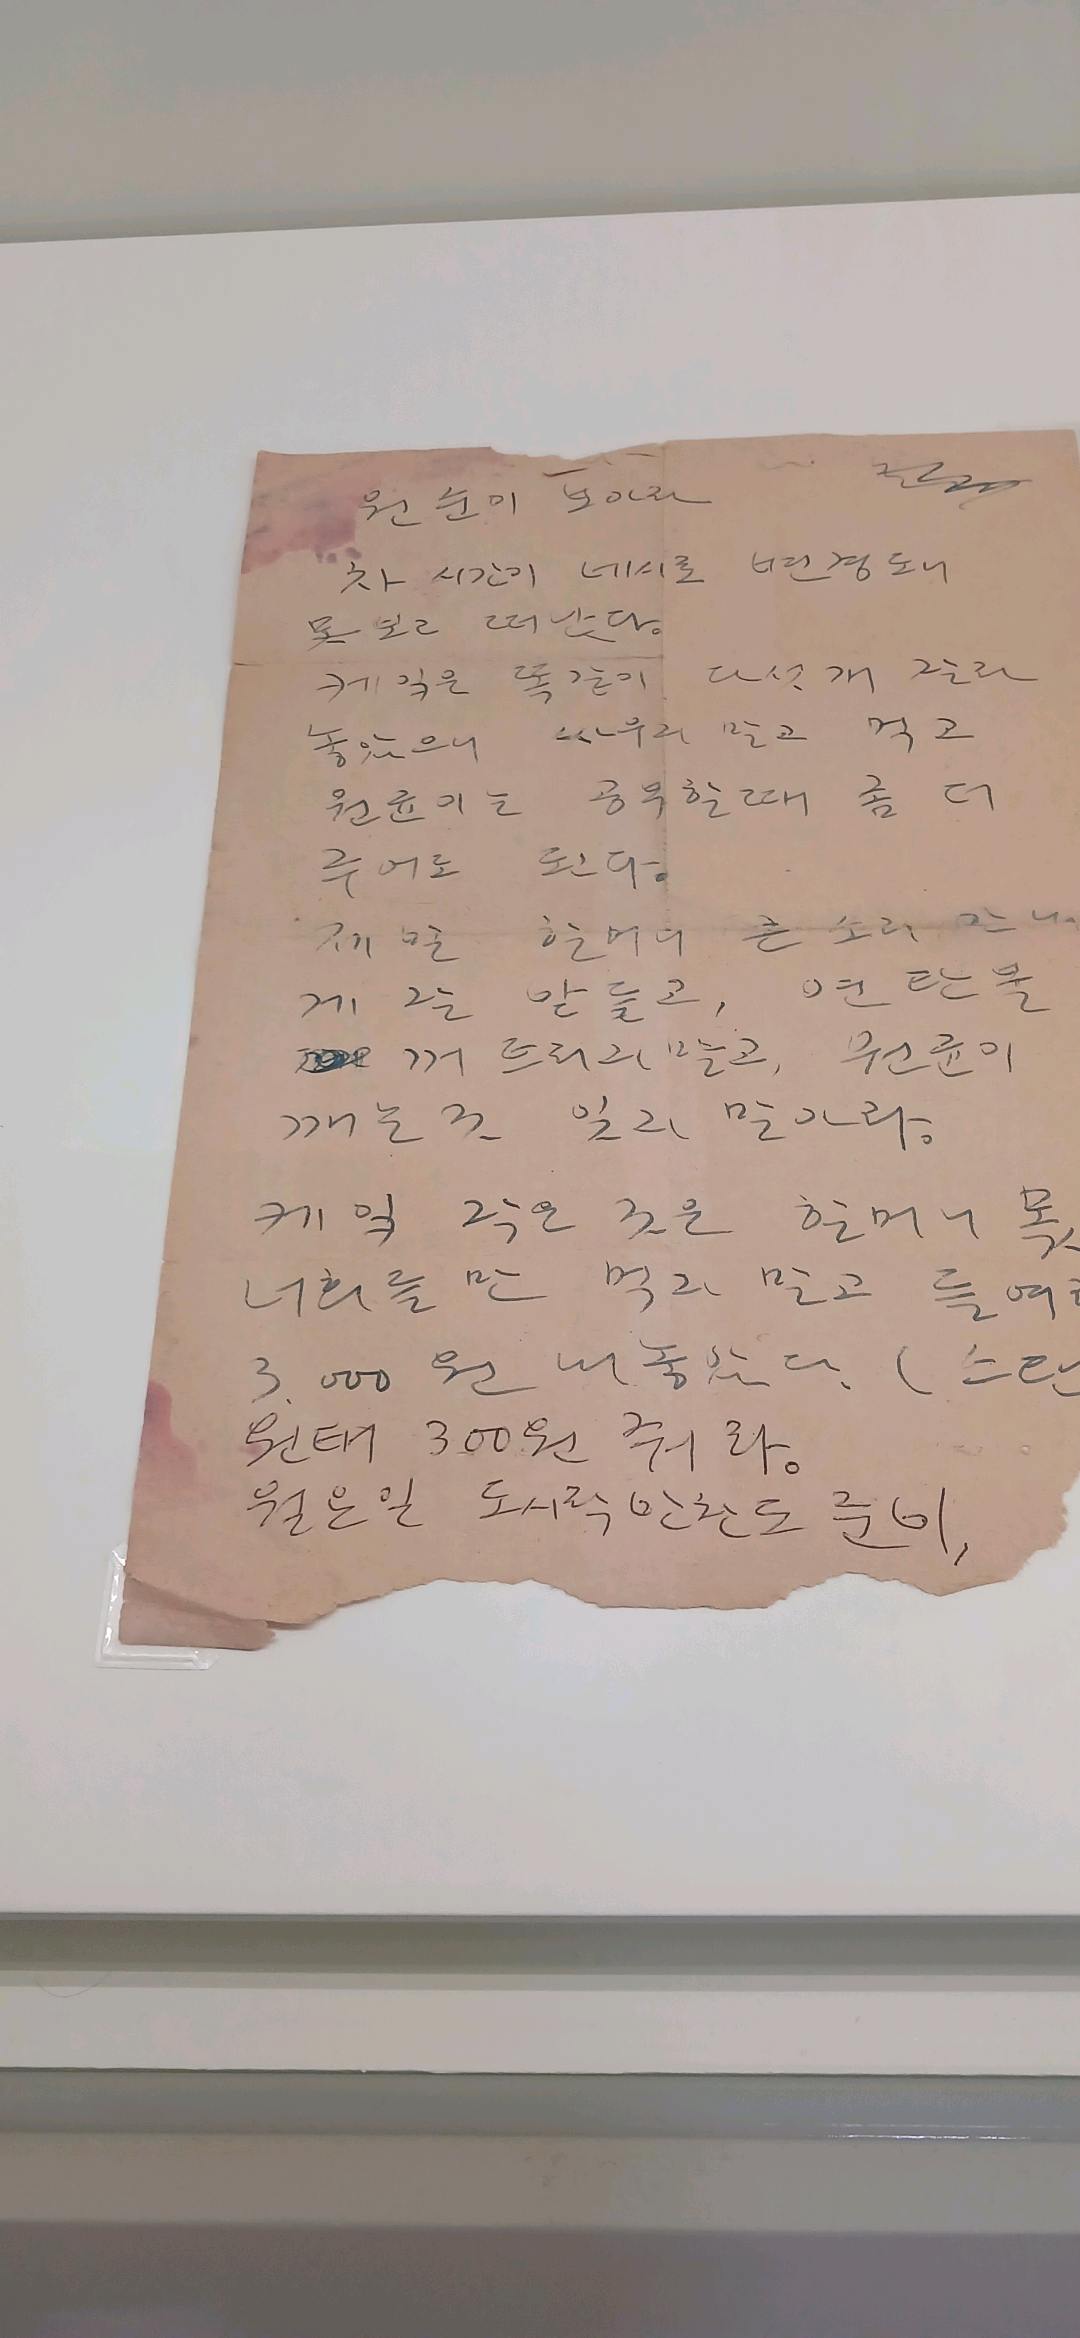 원순이 보아라
차 시간이 네시로 변경되니
못보고 떠났다.
케익은 똑같이 다섯개 갈라
놓았으니 싸우지 말고 먹고
원균이는 공부할때 좀 더
주어도 된다.
제발 할머니 큰소리 안나
게 잘 받들고, 연탄불
꺼트리지 말고, 원균이
깨는것 잊지 말아라.
케익 작은 것은 할머니 몫
너희들만 먹지 말고
3.000원 내놓았다. (
원태 300원 줘라.
월요일 도시락 반찬도 준비,